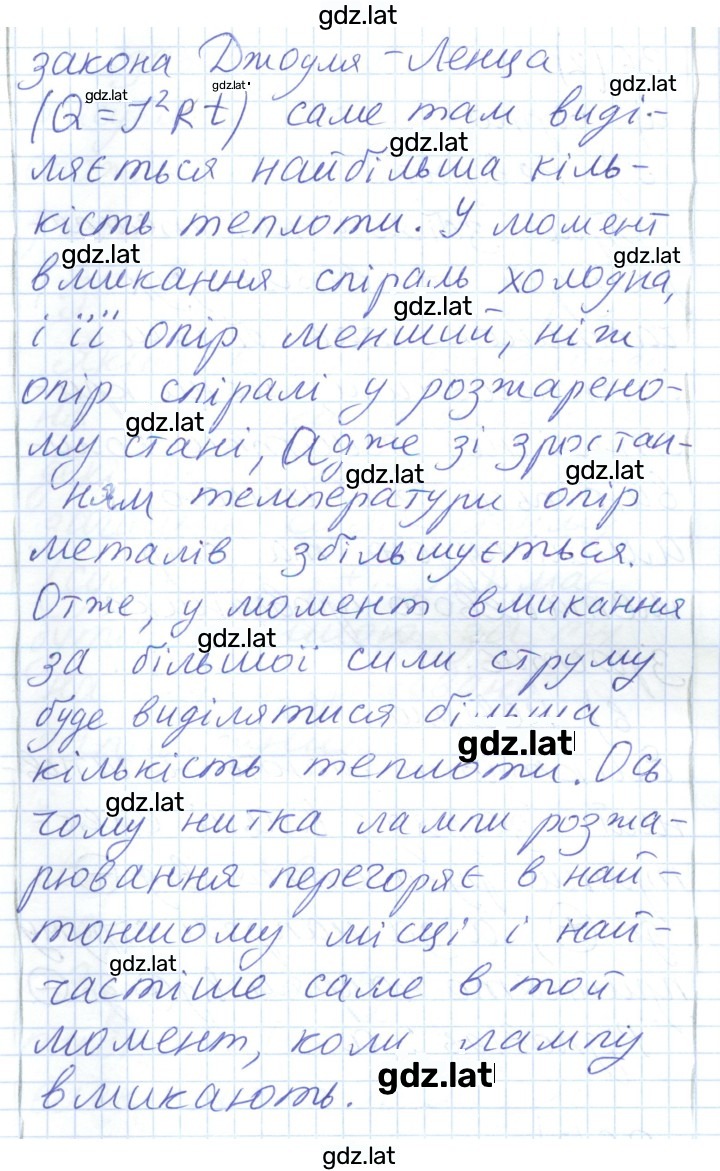 gdz.lat
закона Джоуля-Ленца
gdz.lat gdz.lat gdz.lat
(Q=J²Rt) саме там виді-
gdz.lat
ляється найбільша кіль-
кість теплоти. У момент
gdz.lat gdz.lat
вмикання спіраль холодна,
gdz.lat
і її опір менший, ніж
опір спіралі у розжарено-
gdz.lat
му стані, Адже зі зростан-
gdz.lat gdz.lat
ням температури опір
металів збільшується.
Отже, у момент вмикання
gdz.lat
за більшої сили струму
буде виділятися більша
gdz.lat
кількість теплоти. Ось
gdz.lat
чому нитка лампи розжа-
рювання перегоряє в най-
тоншому місці і най-
gdz.lat
частіше саме в той
момент, коли лампу
gdz.lat
вмикають.
gdz.lat